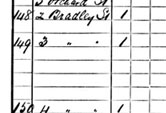 3 Orchard St
148 2 Bradley St 1
149 3 " " 1
150 4 " " 1